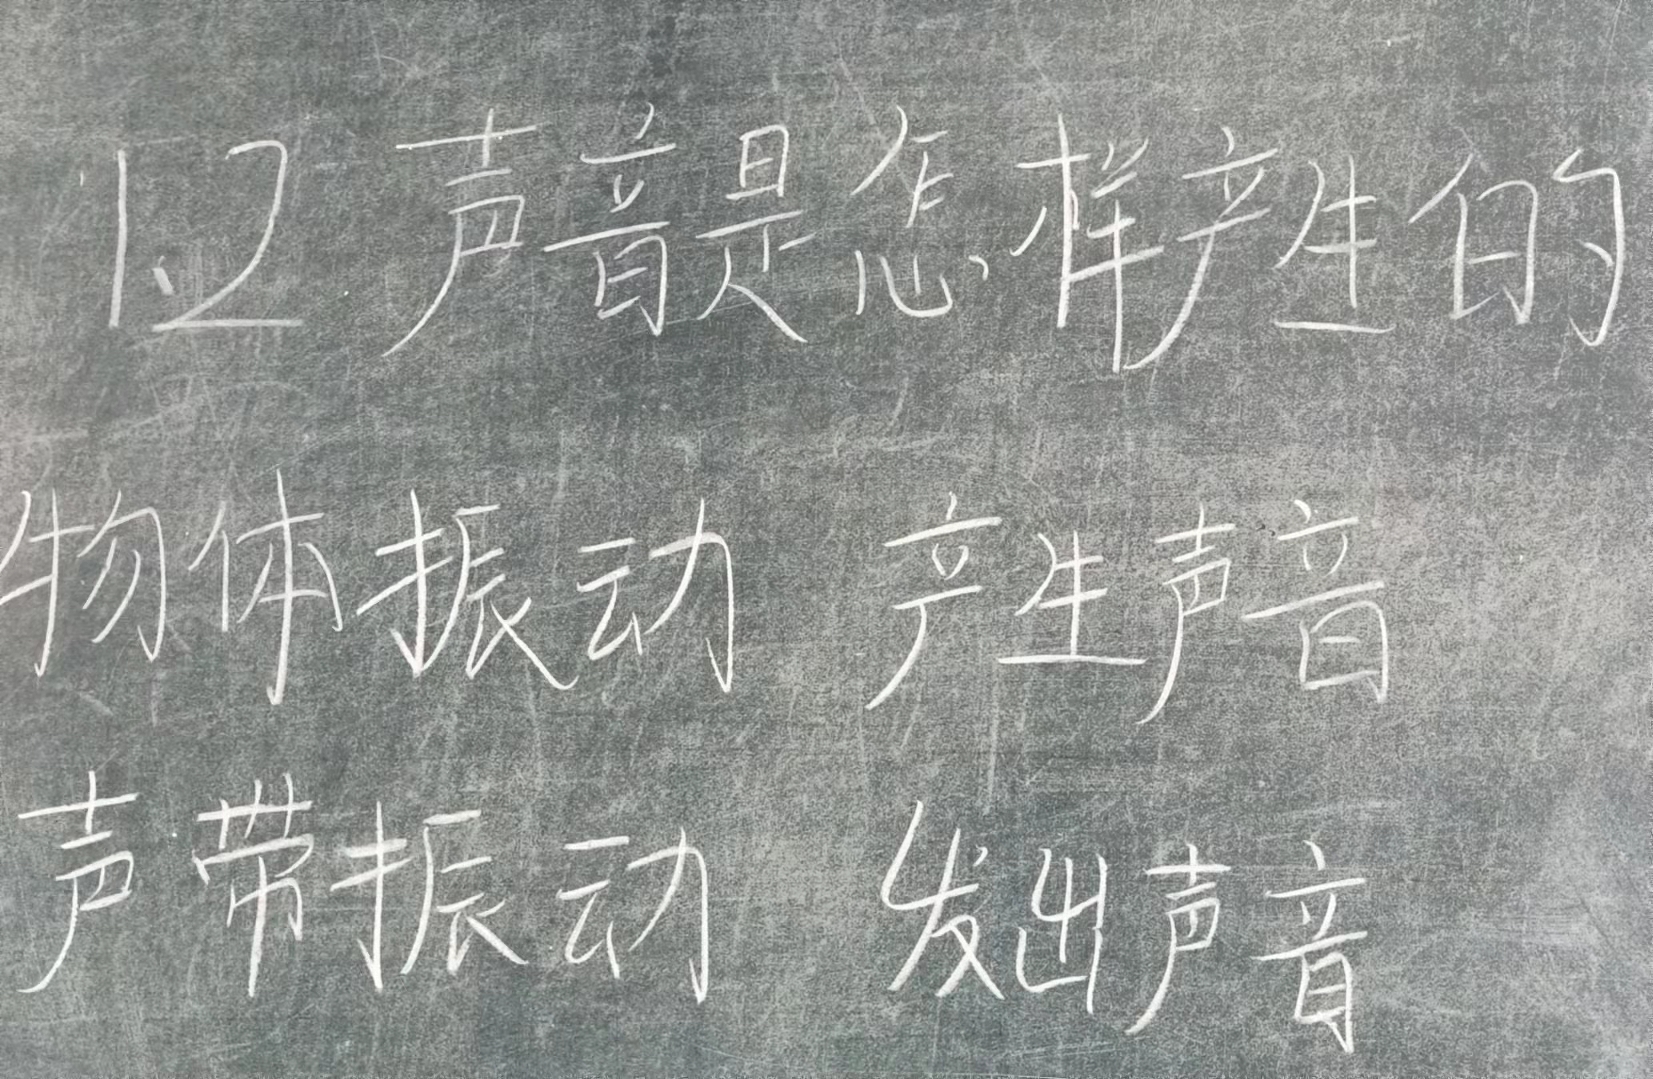 1.2 声音是怎样产生的
物体振动 产生声音
声带振动 发出声音